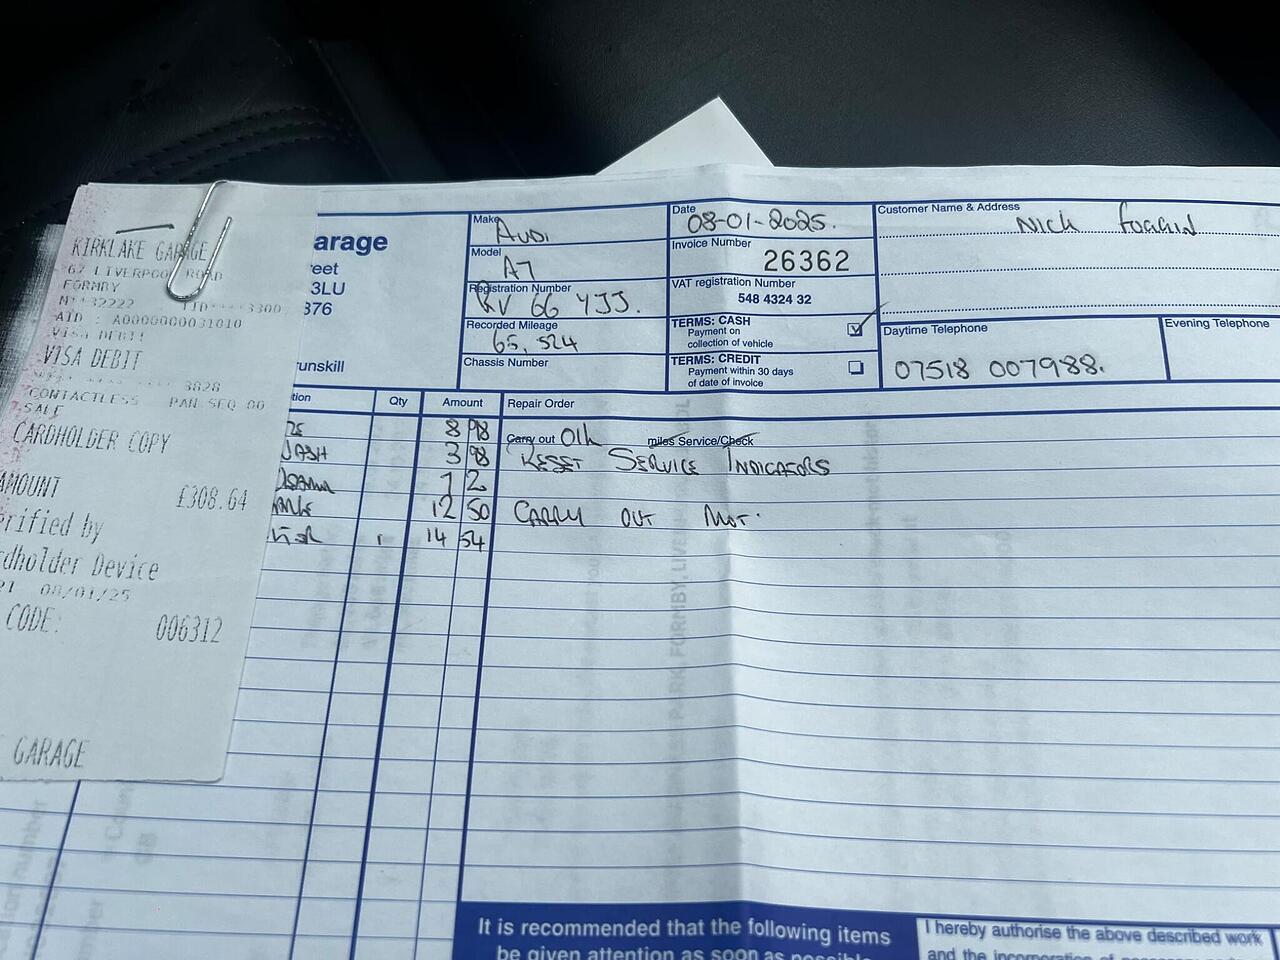 KIRKLAKE GARAGE
67 LIVERPOOL ROAD
FORMBY
M**32222 TID****3300
AID : A0000000031010
VISA DEBIT
VISA DEBIT
**** **** **** 3828
CONTACTLESS PAN SEQ 00
SALE
CARDHOLDER COPY
AMOUNT £308.64
erified by
rdholder Device
08/01/25
CODE: 006312
GARAGE
arage
eet
3LU
376
unskill
Make
Audi
Model
A7
Registration Number
RV 66 YJJ.
Recorded Mileage
65,524
Chassis Number
Date
08-01-2025.
Invoice Number
26362
VAT registration Number
548 4324 32
TERMS: CASH
Payment on
collection of vehicle
TERMS: CREDIT
Payment within 30 days
of date of invoice
Customer Name & Address
Nick Foggin
Daytime Telephone
07518 007988.
Evening Telephone
tion Qty Amount Repair Order
8 98 Carry out Oil miles Service/Check
3 98 Reset Service Indicators
12
12 50 Carry out MOT.
1 14 54
It is recommended that the following items
be given attention as soon as possible
I hereby authorise the above described work
and the incorporation of necessary